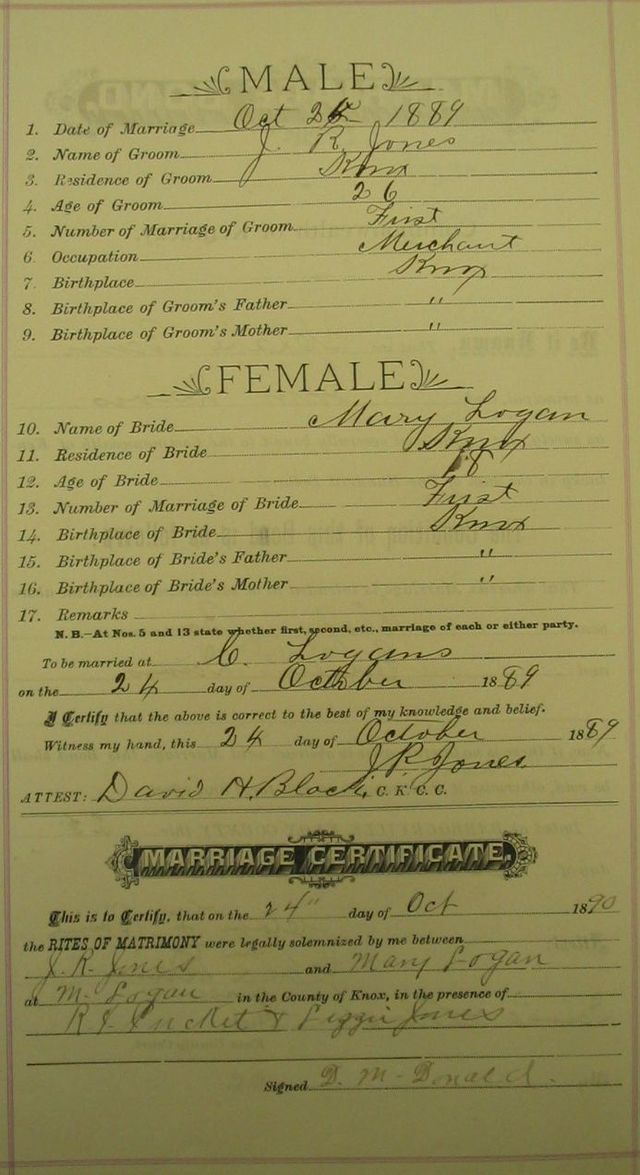 MALE
1. Date of Marriage Oct 24 1889
2. Name of Groom J. R. Jones
3. Residence of Groom Knox
4. Age of Groom 26
5. Number of Marriage of Groom First
6. Occupation Merchant
7. Birthplace Knox
8. Birthplace of Groom's Father "
9. Birthplace of Groom's Mother "
FEMALE
10. Name of Bride Mary Logan
11. Residence of Bride Knox
12. Age of Bride 18
13. Number of Marriage of Bride First
14. Birthplace of Bride Knox
15. Birthplace of Bride's Father "
16. Birthplace of Bride's Mother "
17. Remarks
N. B.—At Nos. 5 and 13 state whether first, second, etc., marriage of each or either party.
To be married at C. Logans
on the 24 day of October 1889
I Certify that the above is correct to the best of my knowledge and belief.
Witness my hand, this 24 day of October 1889
J. R. Jones
ATTEST: David H. Black, C. K. C. C.
MARRIAGE CERTIFICATE.
This is to Certify, that on the 24" day of Oct 1890
the RITES OF MATRIMONY were legally solemnized by me between
J. R. Jones and Mary Logan
at M. Logan in the County of Knox, in the presence of
& Lizzie Jones
Signed D. McDonald.